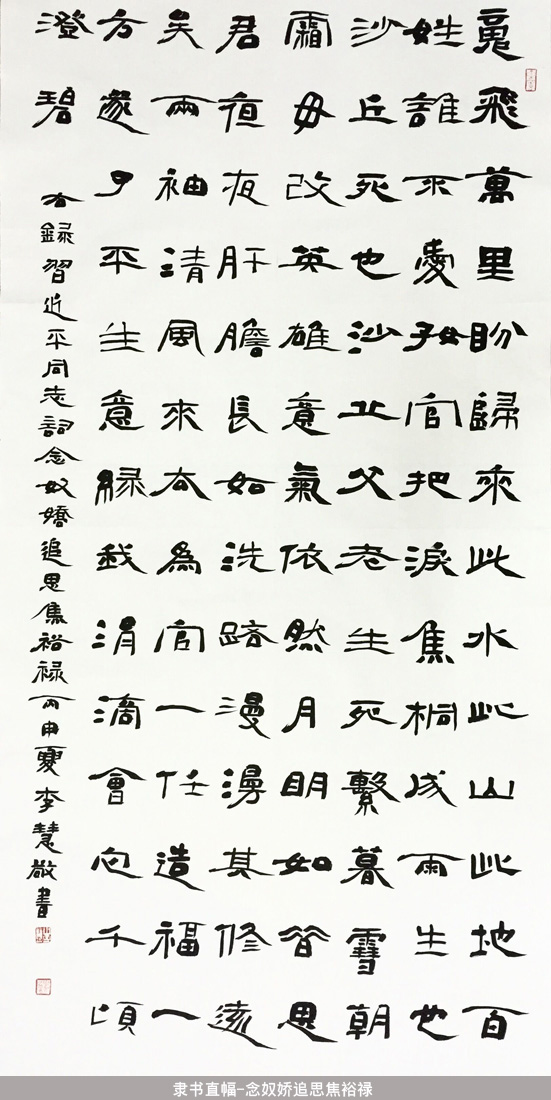 魂飛萬里盼歸來此水此山此地百
姓誰不愛好官把淚焦桐成雨生也
沙丘死也沙丘父老生死繫暮雪朝
霜毋改英雄意氣依然月明如昔思
君夜夜肝膽長如洗路漫漫其修遠
矣兩袖清風來去為官一任造福一
方遂了平生意緑我涓滴會它千頃
澄碧
右録習近平同志詞念奴嬌追思焦裕禄丙申夏李慧敬書
隶书直幅-念奴娇追思焦裕禄